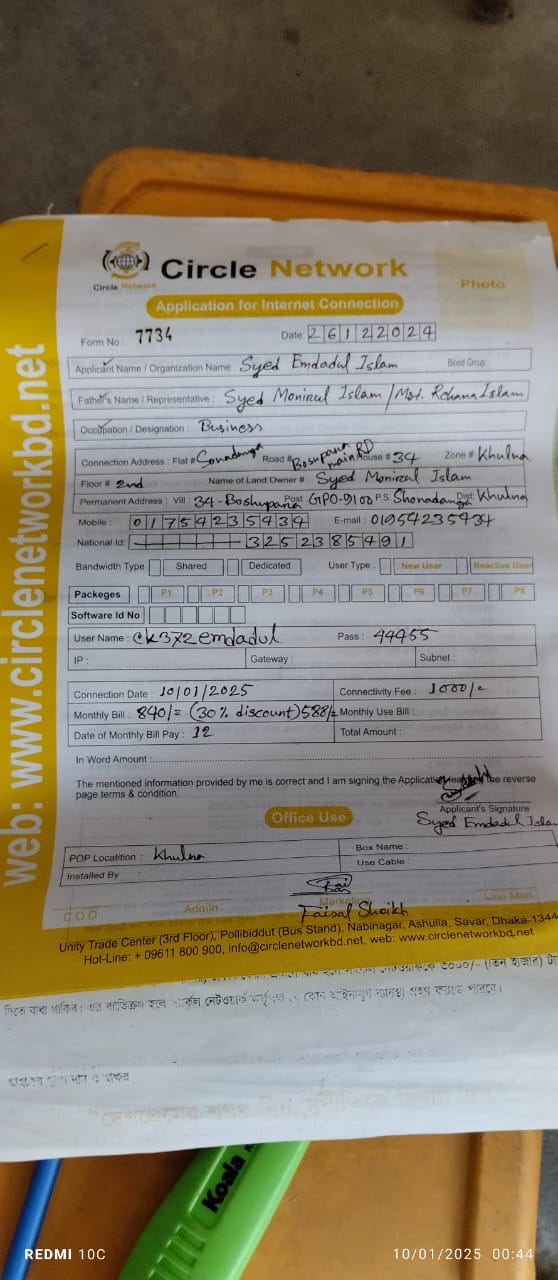 web: www.circlenetworkbd.net
Circle Network
Circle Network
Photo
Application for Internet Connection
Form No : 7734
Date: 26122024
Applicant Name / Organization Name : Syed Emdadul Islam
Blood Group :
Father's Name / Representative : Syed Monirul Islam / Mst. Rehana Islam
Occupation / Designation : Business
Connection Address : Flat # Sonadanga Road # Bosupara main RD House # 34 Zone # Khulna
Floor # 2nd Name of Land Owner # Syed Monirul Islam
Permanent Address : Vill : 34-Boshupara Post : GPO-9100 P.S. Shonadanga Dist: Khulna
Mobile : 01754235434 E-mail : 01954235434
National Id: 3252385491
Bandwidth Type Shared Dedicated User Type : New User Reactive User
Packeges P1 P2 P3 P4 P5 P6 P7 P8
Software Id No
User Name : ck372emdadul Pass : 44455
IP : Gateway : Subnet :
Connection Date : 10/01/2025 Connectivity Fee : 1000/=
Monthly Bill : 840/= (30% discount) 588/= Monthly Use Bill :
Date of Monthly Bill Pay : 12 Total Amount :
In Word Amount :
The mentioned information provided by me is correct and I am signing the Application the reverse
page terms & condition.
Applicant's Signature
Syed Emdadul Islam
Office Use
POP Locatition : Khulna Box Name :
Installed By : Use Cable :
C.O.O Admin Marketing Line Man
Faisal Sheikh
Unity Trade Center (3rd Floor), Pollibiddut (Bus Stand), Nabinagar, Ashulia, Savar, Dhaka-1344
Hot-Line: + 09611 800 900, info@circlenetworkbd.net, web: www.circlenetworkbd.net
৩০০০/- (তিন হাজার) টা
দিতে বাধ্য থাকিব। এর ব্যতিক্রম হলে সার্কেল নেটওয়ার্ক কর্তৃপক্ষ যে কোন আইনানুগ ব্যবস্থা গ্রহণ করতে পারবে।
Koala
REDMI 10C
10/01/2025 00:44